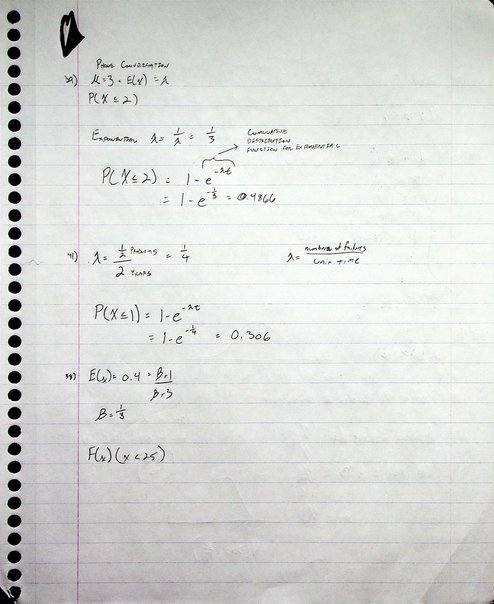 PHONE CONVERSATION
39) μ = 3 = E(x) = λ
P(X ≤ 2)
EXPONENTIAL λ = 1/λ = 1/3
CUMULATIVE
DISTRIBUTION
FUNCTION FOR EXPONENTIAL
P(X ≤ 2) = 1 - e^{-λt}
= 1 - e^{-1/3} = 0.4866
41) λ = 1/2 FAILURES / 2 YEARS = 1/4
λ = number of failures / unit time
P(X ≤ 1) = 1 - e^{-λt}
= 1 - e^{-1/4} = 0.306
E(x) = 0.4 = β+1 / β+3
β = 1/3
F(x) (x < 25)